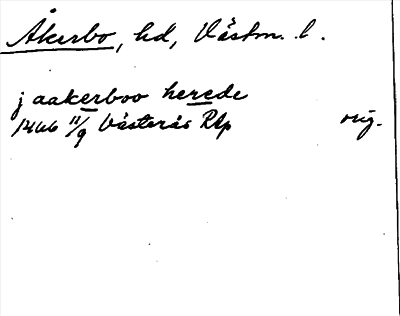 Åkerbo, hd, Västm. l.
j aakerboo herede
1466 11/9 Västerås RAp orig.